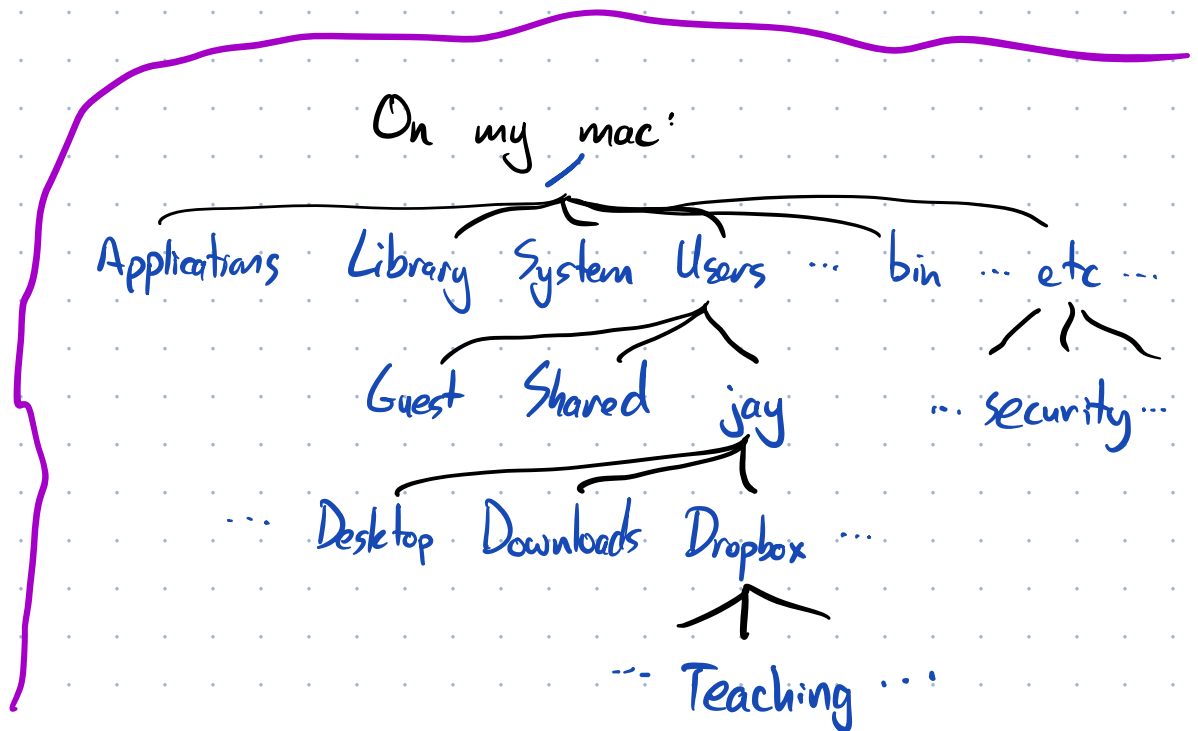 On my mac:
/
Applications Library System Users ... bin ... etc ...
Guest Shared jay ... security ...
... Desktop Downloads Dropbox ...
... Teaching ...